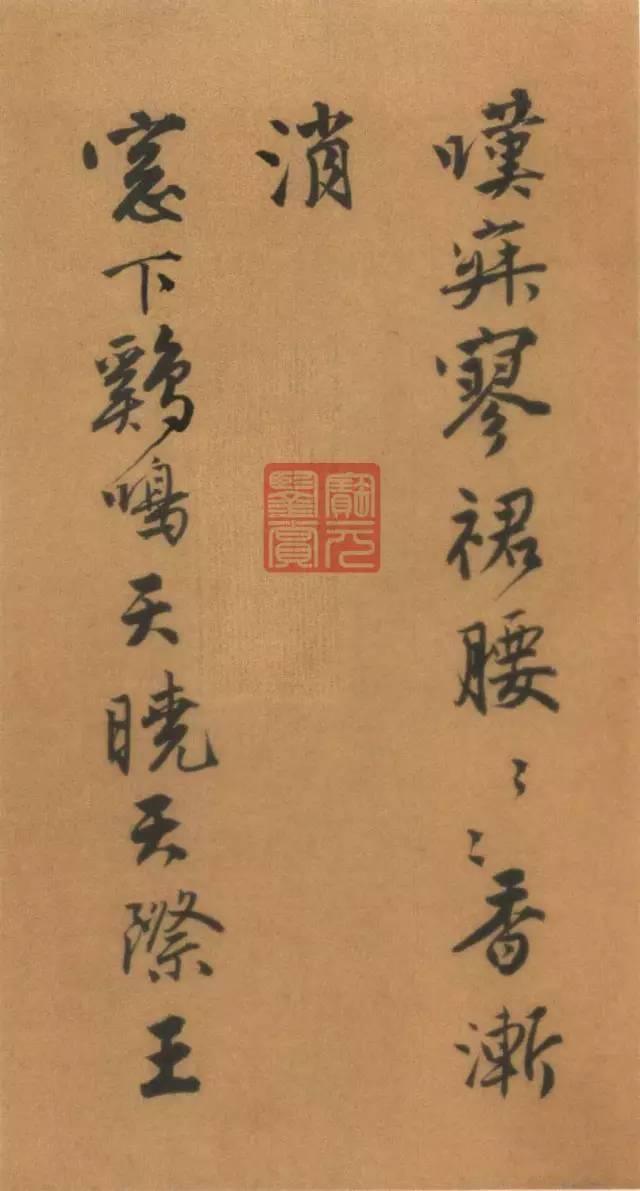 嘆寂寥裙腰〻〻香漸
消
窓下鷄鳴天曉天際王
寶元
鑒賞